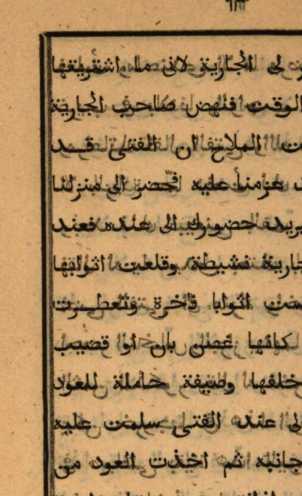 لى الجارية لانى ما اشتريتها
الوقت فنهض صاحب الجارية
الملاح ان الفتى قد
عزمنا عليه فحضر الى منزلنا
يريد حضورك الى عنده فعند
جارية نشيطة وقلعت اثوابها
اثوابا فاخرة وتعطرت
كانها غصن بان او قضيب
خلفها وصيفة حاملة للعود
الى عند الفتى سلمت عليه
جانبه ثم اخذت العود من